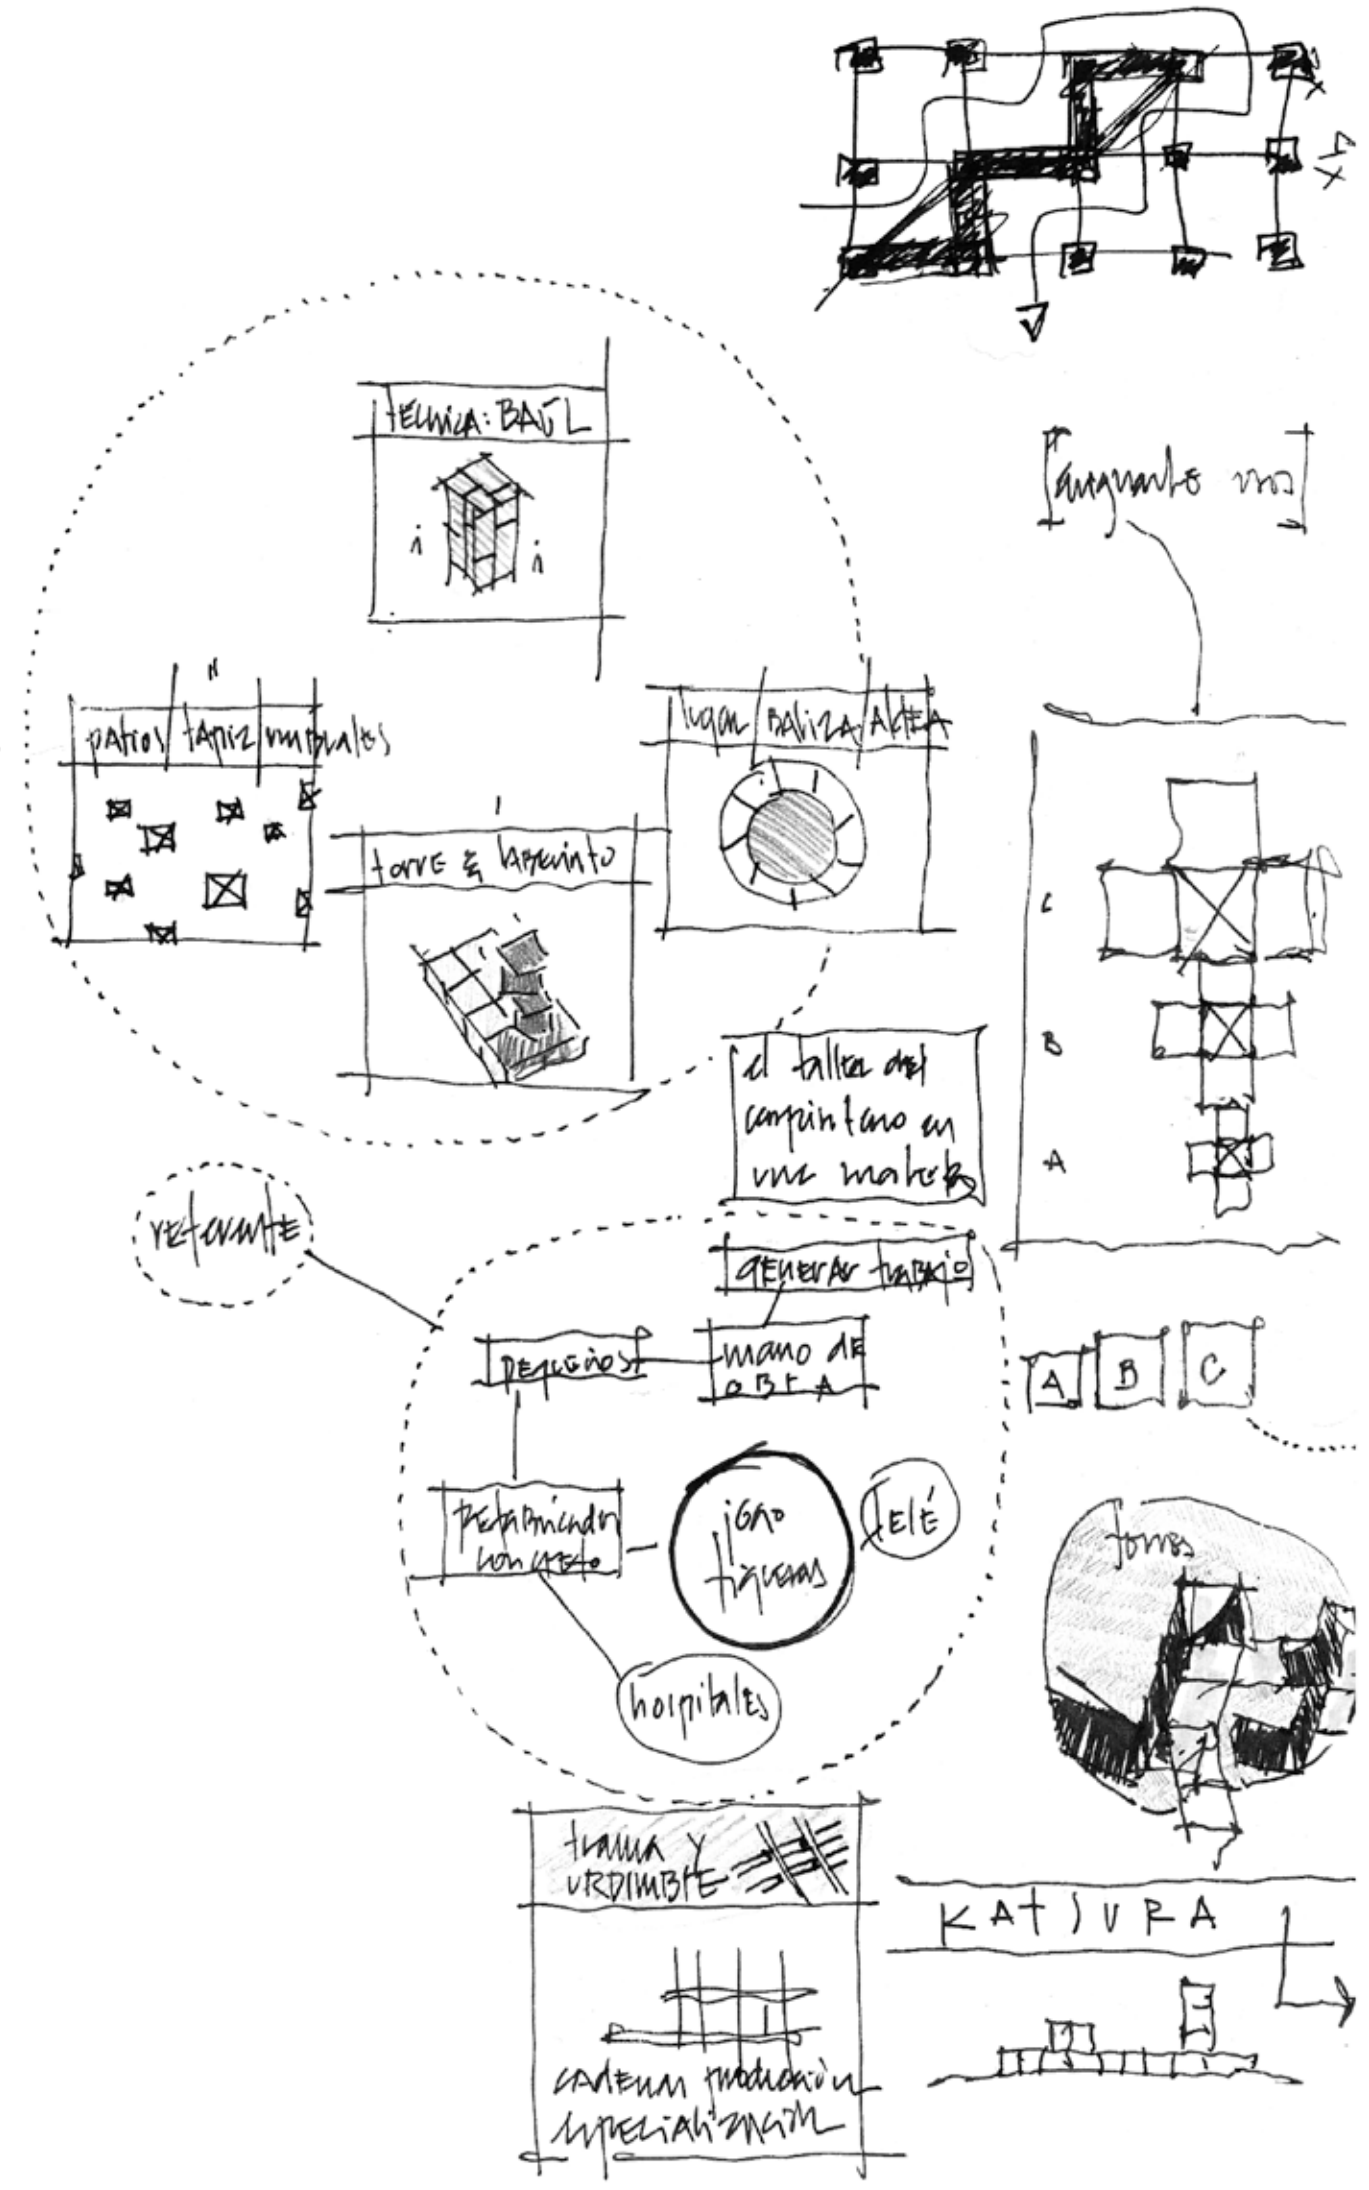 técnica: BAÚL
patios tapiz umbrales
lugar BALIZA ALDEA
torre & laberinto
el taller del
carpintero en
una maleta
referente
generar trabajo
pequeños
mano de
obra
prefabricador
concreto
Lelé
hospitales
C
B
A
A B C
torres
trama y
URDIMBRE
KATSURA
cadenas producción
especialización